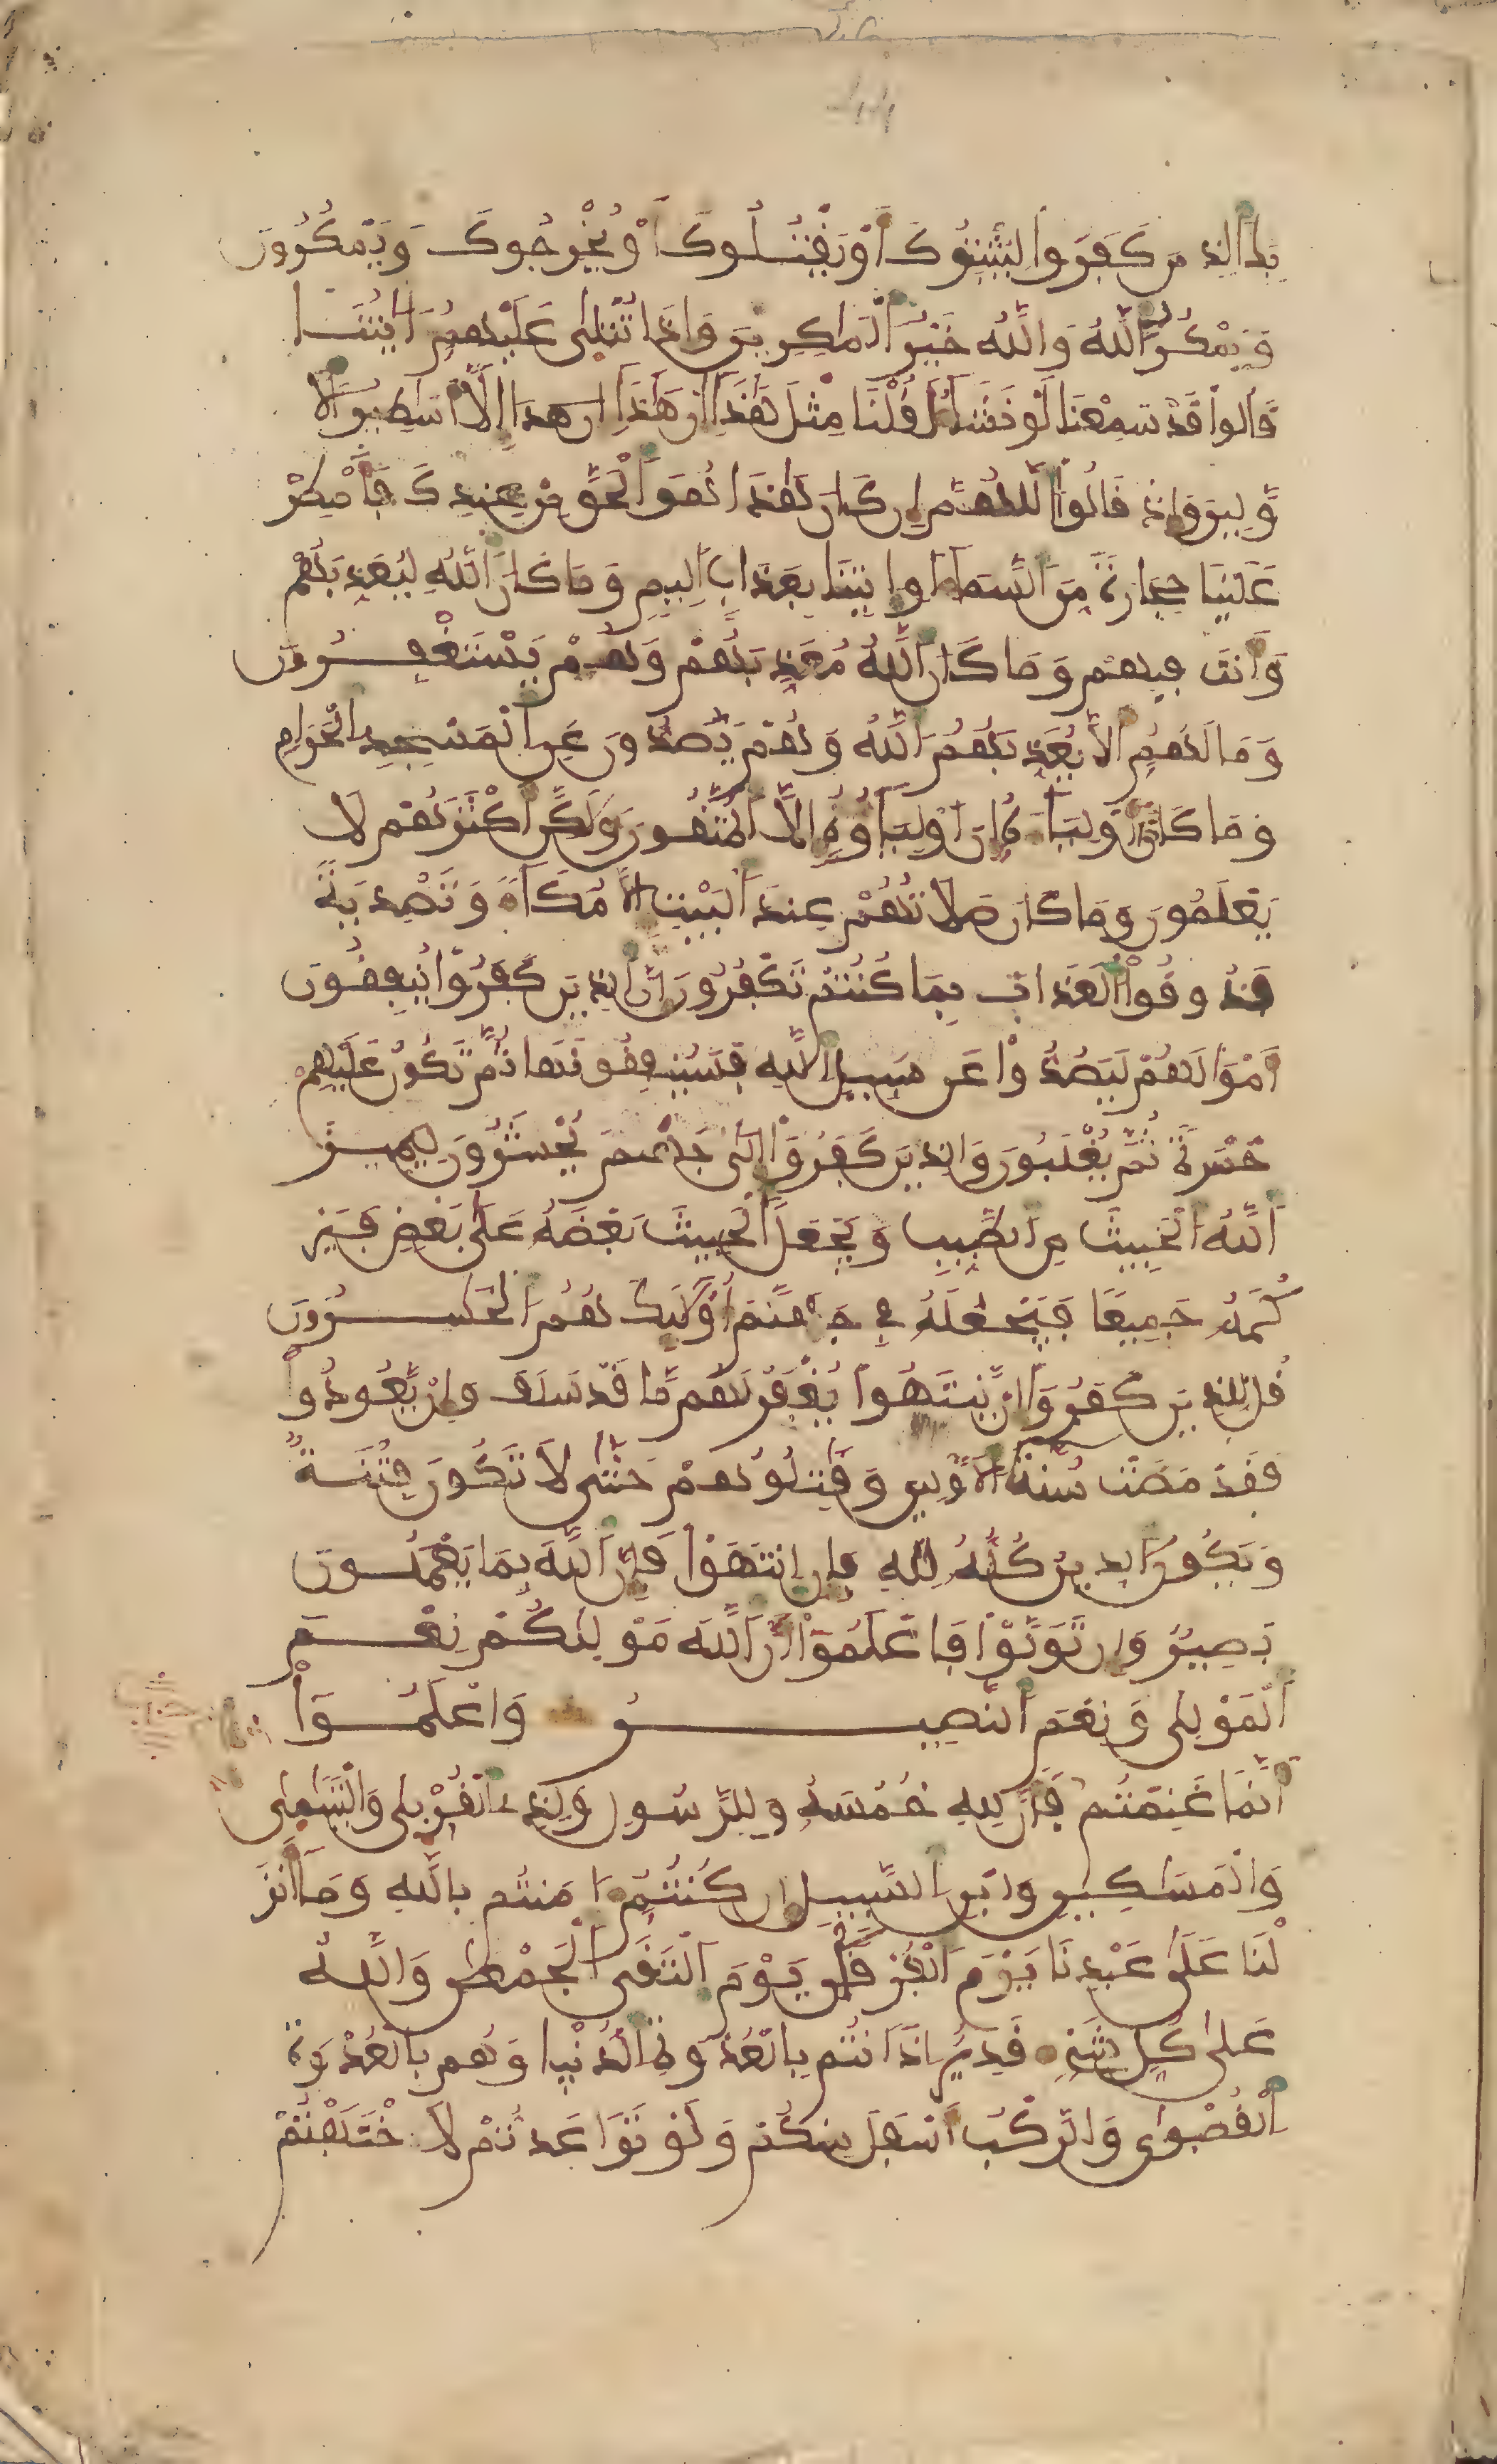 بك الذين كفروا ليثبتوك أو يقتلوك أو يخرجوك ويمكرون
ويمكر الله والله خير الماكرين وإذا تتلى عليهم ءايتنا
قالوا قد سمعنا لو نشاء لقلنا مثل هذا إن هذا إلا أسطير الا
ولين وإذ قالوا اللهم إن كان هذا هو الحق من عندك فأمطر
علينا حجارة من السماء أو ايتنا بعذاب اليم وما كان الله ليعذبهم
وأنت فيهم وما كان الله معذبهم وهم يستغفرون
وما لهم ألا يعذبهم الله وهم يصدون عن المسجد الحرام
وما كانوا أولياءه إن أولياؤه إلا المتقون ولكن أكثرهم لا
يعلمون وما كان صلاتهم عند البيت إلا مكاء وتصدية
فذوقوا العذاب بما كنتم تكفرون إن الذين كفروا ينفقون
أموالهم ليصدوا عن سبيل الله فسينفقونها ثم تكون عليهم
حسرة ثم يغلبون والذين كفروا إلى جهنم يحشرون ليميز
الله الخبيث من الطيب ويجعل الخبيث بعضه على بعض فير
كمه جميعا فيجعله في جهنم أولئك هم الخسرون
قل للذين كفروا إن ينتهوا يغفر لهم ما قد سلف وإن يعودوا
فقد مضت سنة الأولين وقتلوهم حتى لا تكون فتنة
ويكون الدين كله لله فإن انتهوا فإن الله بما يعملون
بصير وإن تولوا فاعلموا أن الله مولىكم نعم
المولى ونعم النصير واعلموا
أنما غنمتم فأن لله خمسه وللرسول ولذى القربى واليتمى
والمسكين وابن السبيل إن كنتم ءامنتم بالله وما أنز
لنا على عبدنا يوم الفرقان يوم التقى الجمعن والله
على كل شىء قدير إذ أنتم بالعدوة الدنيا وهم بالعدوة
القصوى والركب أسفل منكم ولو تواعدتم لا ختلفتم